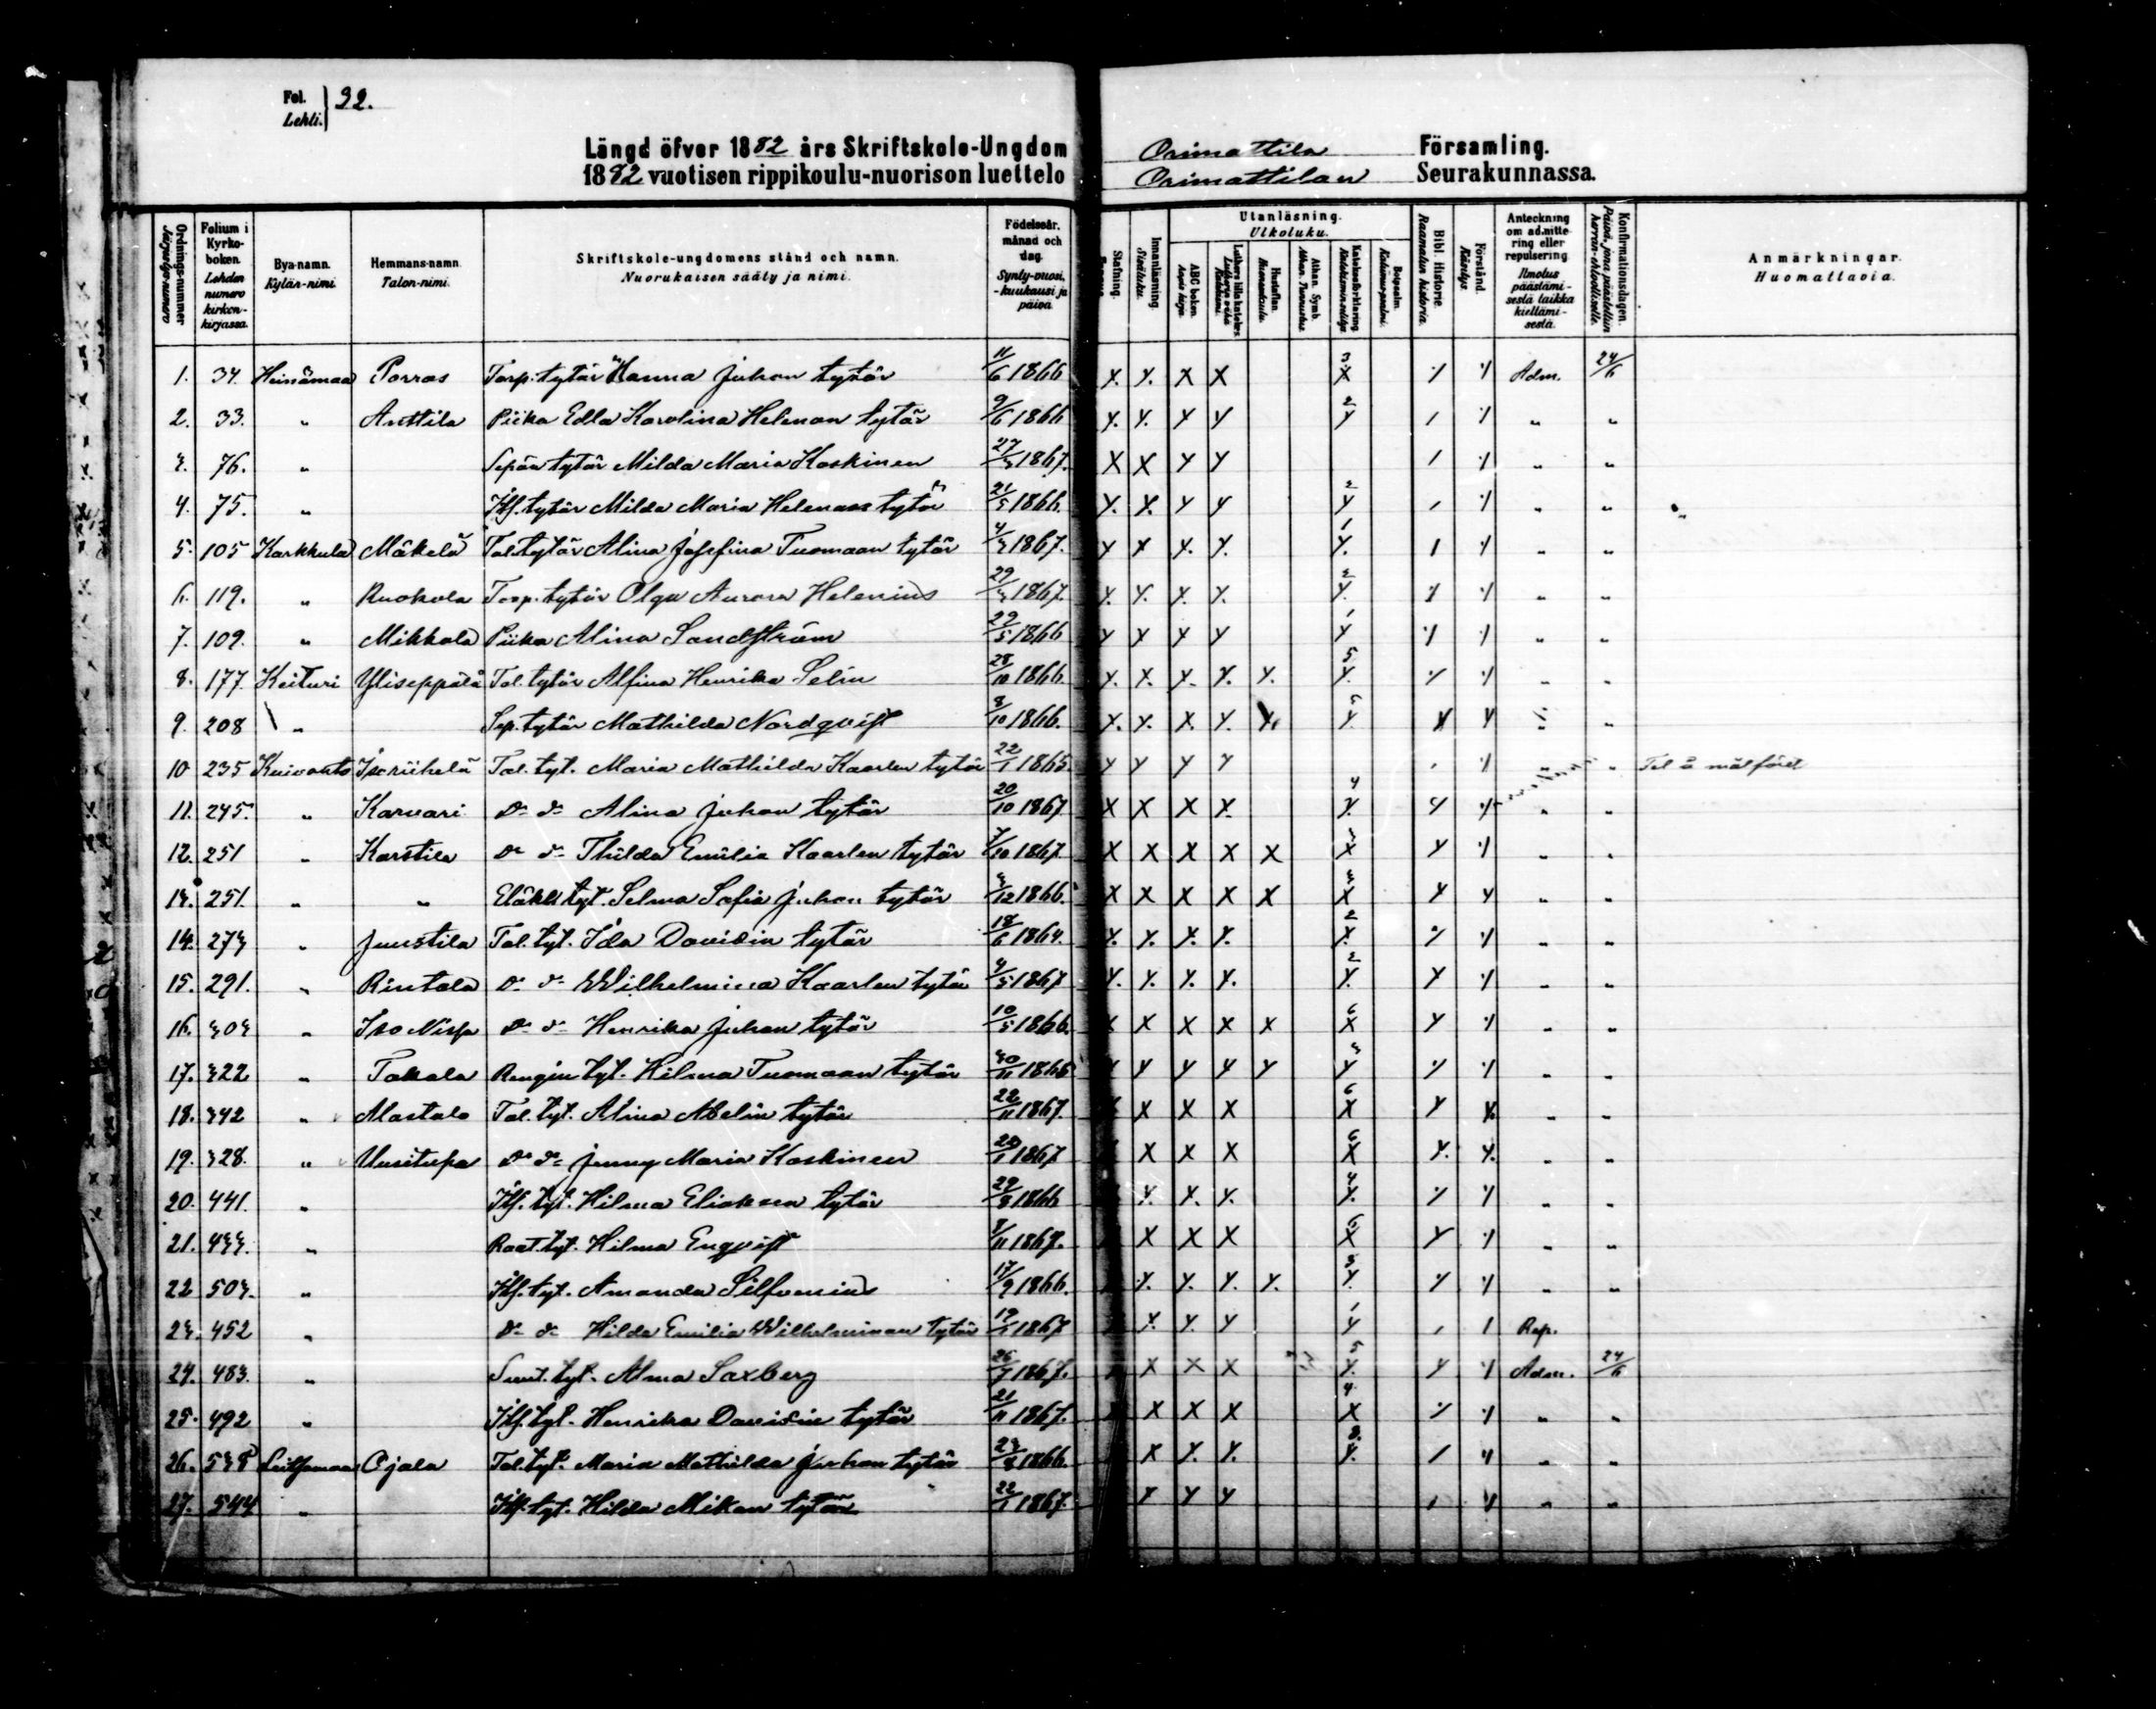 Fol. 32.
Lehti.
Längd öfver 1882 års Skriftskole-Ungdom Orimattila Församling.
1882 vuotisen rippikoulu-nuorison luettelo Orimattilan Seurakunnassa.
Ordnings-nummer Folium i Kyrko-boken. Bya-namn. Hemmans-namn. Skriftskole-ungdomens stånd och namn. Födelseår, månad och dag. Stafning. Innanläsning. Utanläsning. ABC boken. Luthers lilla katekes. Hustaflan. Athan. Symb. Katekesförklaring. Botpsalm. Bibl. Historie. Förstånd. Anteckning om admittering eller repulsering. Konfirmationsdagen. Anmärkningar.
Järjestys-numero Lehden numero kirkon-kirjassa. Kylän-nimi. Talon-nimi. Nuorukaisen sääty ja nimi. Synty-vuosi, -kuukausi ja päivä. Sisäluku. Ulkoluku. Aapis kirja. Lutherin vähä Katekismus. Huoneentaulu. Athan. Tunnustus. Katekismin selitys. Katumus-psalmi. Raamatun historia. Käsitys. Ilmotus päästämisestä taikka kieltämisestä. Päivä, jona päästettiin herran-ehtoolliselle. Huomattavia.
1. 34. Heinämaa Porras Torp. tytär Hanna Juhon tytär 11/6 1866 X. X. X X 3 X ٪ ٪ Adm. 24/6
2. 33. " Anttila Piika Edla Karolina Helenan tytär 9/6 1866 X. X. X X 2 X / ٪ " "
3. 76. " Sepän tytär Milda Maria Koskinen 27/3 1867. X X X X / ٪ " "
4. 75. " Itf. tytär Milda Maria Helenan tytär 21/5 1866. X. X. X X 2 X / ٪ " "
5. 105 Karkkula Mäkelä Tal. tytär Alina Josefina Tuomaan tytär 4/3 1867. X X X. X. 1 X. / ٪ " "
6. 119. " Ruokola Torp. tytär Olga Aurora Helenius 29/3 1867. X. X. X. X. 2 X. ٪ ٪ " "
7. 109. " Mikkola Piika Alina Sandström 29/5 1866 X X X X 1 X ٪ ٪ " "
8. 177. Keituri Yliseppälä Tal. tytär Alfina Henrika Selin 28/10 1866. X. X. X. X. X. 5 X. ٪ ٪ " "
9. 208 " Sep. tytär Mathilda Nordqvist 3/10 1866. X. X. X X. X. 5 X X X " "
10 235 Kuivanto Isoriihelä Tal. tyt. Maria Mathilda Kaarlen tytär 22/1 1865. X X X X / ٪ " "
11. 245. " Karvari Do do Alina Juhon tytär 20/10 1867 X X X X. 4 X. ٪ ٪ " "
12. 251 " Karstila Do do Thilda Emilia Kaarlen tytär 7/10 1867. X X X X X 3 X X ٪ " "
13. 251. " " Eläkl. tyt. Selma Sofia Juhon tytär 3/12 1866. X X X X X 3 X X X " "
14. 273 " Juustila Tal. tyt. Ida Davidin tytär 18/6 1864. X. X. X. X. 2 X. ٪ ٪ " "
15. 291. " Rintala Do do Wilhelmina Kaarlen tytär 4/5 1867 X. X. X. X. 2 X. X ٪ " "
16. 303 " Iso Nispa Do do Henrika Juhon tytär 10/5 1866. X X X X X 6 X X ٪ " "
17. 322 " Takala Rengin tyt. Hilma Tuomaan tytär 30/11 1866 X X X X X 3 X ٪ ٪ " "
18. 342 " Mastala Tal. tyt. Alina Abelin tytär 22/11 1867. X X X 6 X X X. " "
19. 328. " Uusitupa Do do Jenny Maria Koskinen 20/1 1867 X X X 6 X X. X. " "
20. 441. " Itf. tyt. Hilma Eliaksen tytär 29/8 1866 X. X. X. 4 X. ٪ ٪ " "
21. 433. " Raat. tyt. Hilma Enqvist 8/11 1867. X X X 6 X X ٪ " "
22 503. " Itf. tyt. Amanda Silfvenius 17/9 1866. X. X. X. X. 3 X. ٪ ٪ " "
23. 452 " Do do Hilda Emilia Wilhelminan tytär 1867 X. X. X 1 X / / Rep.
24. 483. " Suut. tyt. Alma Saxberg 26/7 1867. X X X 5 X. X ٪ Adm. 24/6
25. 492 " Itf. tyt. Henrika Davidin tytär 21/11 1867. X X X 4 X ٪ ٪ " "
26. 538 Leitsamaa Ojala Tal. tyt. Maria Mathilda Juhon tytär 23/8 1866. X X. X. 3. X. / ٪ " "
27. 544 " Itf. tyt. Hilda Mikon tytär 22/1 1867. X X X / ٪ " "